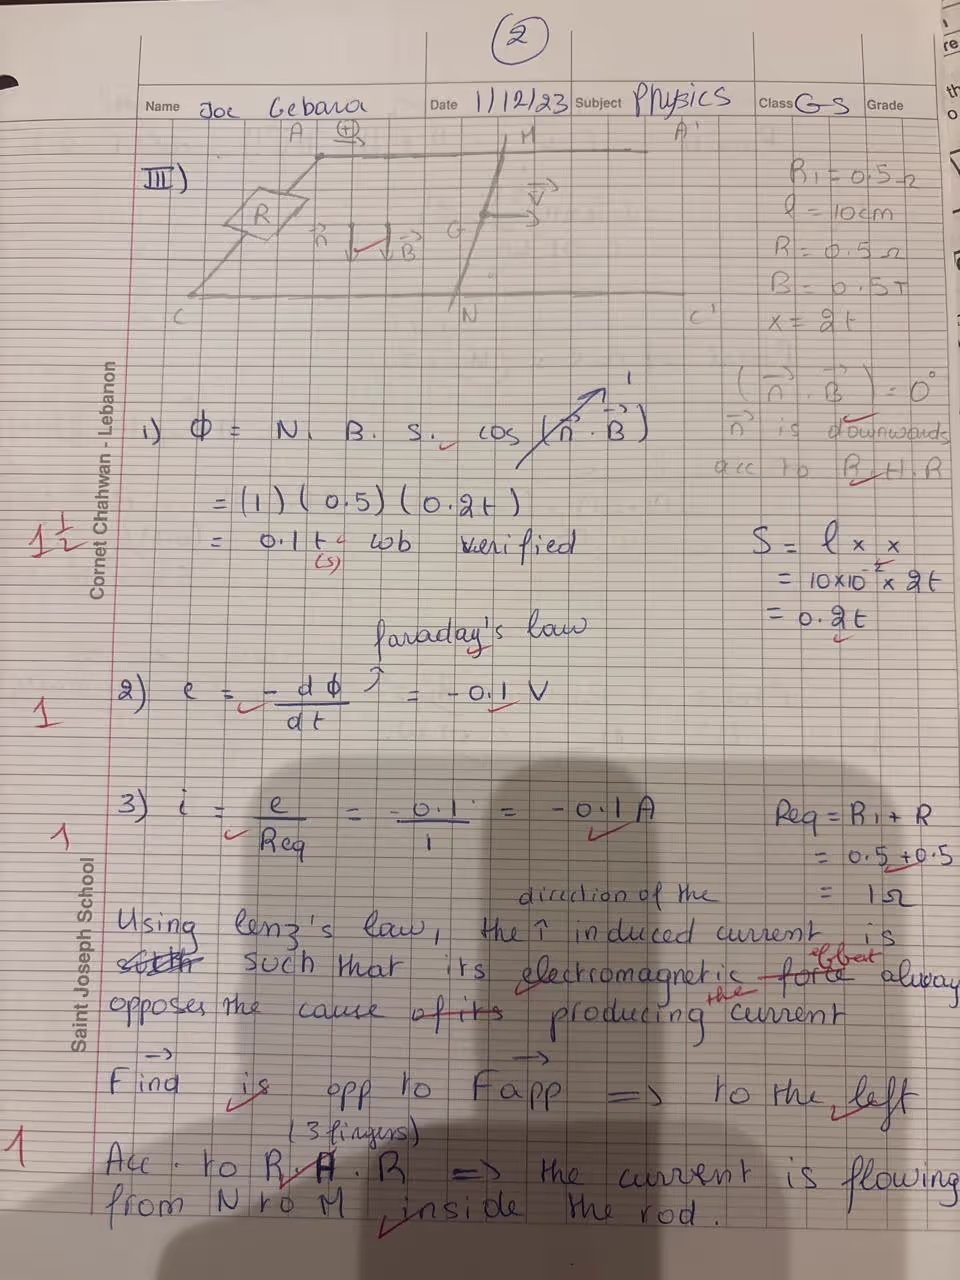 2
Name Joe Gebara Date 1/12/23 Subject Physics Class GS Grade
A + M A'
III)
R n B G V
C N C'
R1 = 0.5 Ω
l = 10cm
R = 0.5 Ω
B = 0.5T
x = 2t
(n . B) = 0°
n is downwards
acc to R.H.R
1) ϕ = N. B. S. cos (n . B) 1
= (1) ( 0.5) ( 0.2t )
= 0.1 t wb verified
(s)
1 1/2
S = l x x
= 10x10^-2 x 2t
= 0.2t
faraday's law
2) e = - dϕ/dt = -0.1 V
1
3) i = e/Req = -0.1/1 = -0.1 A
1
Req = R1 + R
= 0.5 +0.5
= 1Ω
direction of the
Using lenz's law, the ↑ induced current is
such that its electromagnetic force effect alway
opposes the cause of its producing the current
Find is opp to Fapp => to the left
(3 fingers)
1
Acc. to R.H.R => the current is flowing
from N to M inside the rod.
Cornet Chahwan - Lebanon
Saint Joseph School
re
th